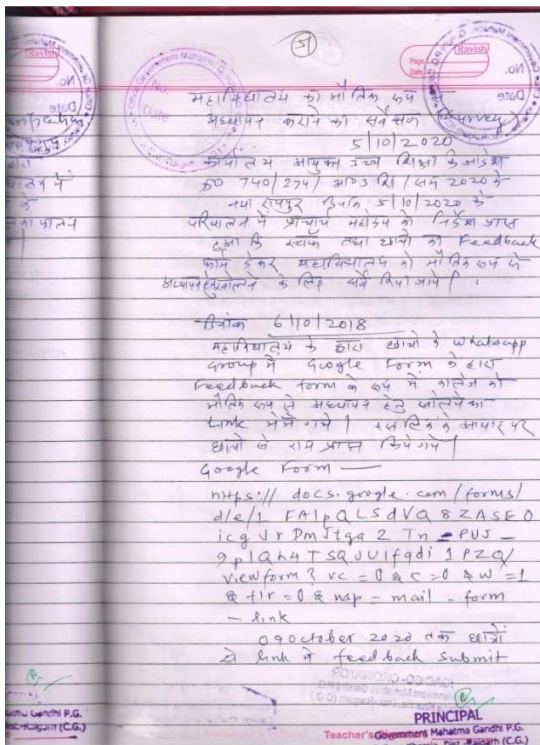 51
Ravish
Page
Date
महाविद्यालय को भौतिक रूप से
अध्यापन कराने का सर्वेक्षण (Survey)
5/10/2020
कार्यालय आयुक्त उच्च शिक्षा के आदेश
क्र० 740/274/ आउशि / सम 2020 के
नवा रायपुर दिनांक 5/10/2020 के
परिपालन में प्राचार्य महोदय को निर्देश प्राप्त
हुआ कि स्टाफ तथा छात्रों को Feedback
फॉर्म देकर महाविद्यालय को भौतिक रूप से
अध्यापन हेतु खोलने के लिए सर्वे किया जाये।
दिनांक 6/10/2018
महाविद्यालय के द्वारा छात्रों के Whatsapp
Group में Google Form के द्वारा
Feedback form के रूप में कालेज को
भौतिक रूप से अध्यापन हेतु खोलने का
Link भेजे गये। इस लिंक के आधार पर
छात्रों से राय प्राप्त किये गये।
Google Form —
https:// docs. google. com / forms/
d/e/1 FAIpQLSdVQ 8ZASEO
icg JrDmJtga 2 Tn - PUJ -
9plQh4TSQUU1fqdi 1PZQ/
viewform? vc =0 & c =0 & w =1
& flr =0 & usp = mail - form
- link
09 october 2020 तक छात्रों
से link में feedback submit
PRINCIPAL
Teacher's Government Mahatma Gandhi P.G.
Dist.-Raigarh (C.G.)
Gandhi P.G.
(C.G.)